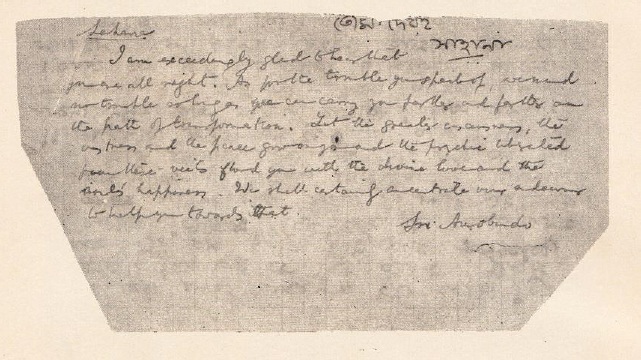 Sahana
সাহানা
I am exceedingly glad to hear that
you are all right. As for the trouble you speak of we mind
no trouble so long as we can carry you farther and farther on
the path of transformation. Let the greater consciousness, the
vastness and the peace grow in you and the psychic liberated
from veils flood you with the divine love and the
soul's happiness. We shall certainly concentrate our endeavour
to help you towards that
Sri Aurobindo